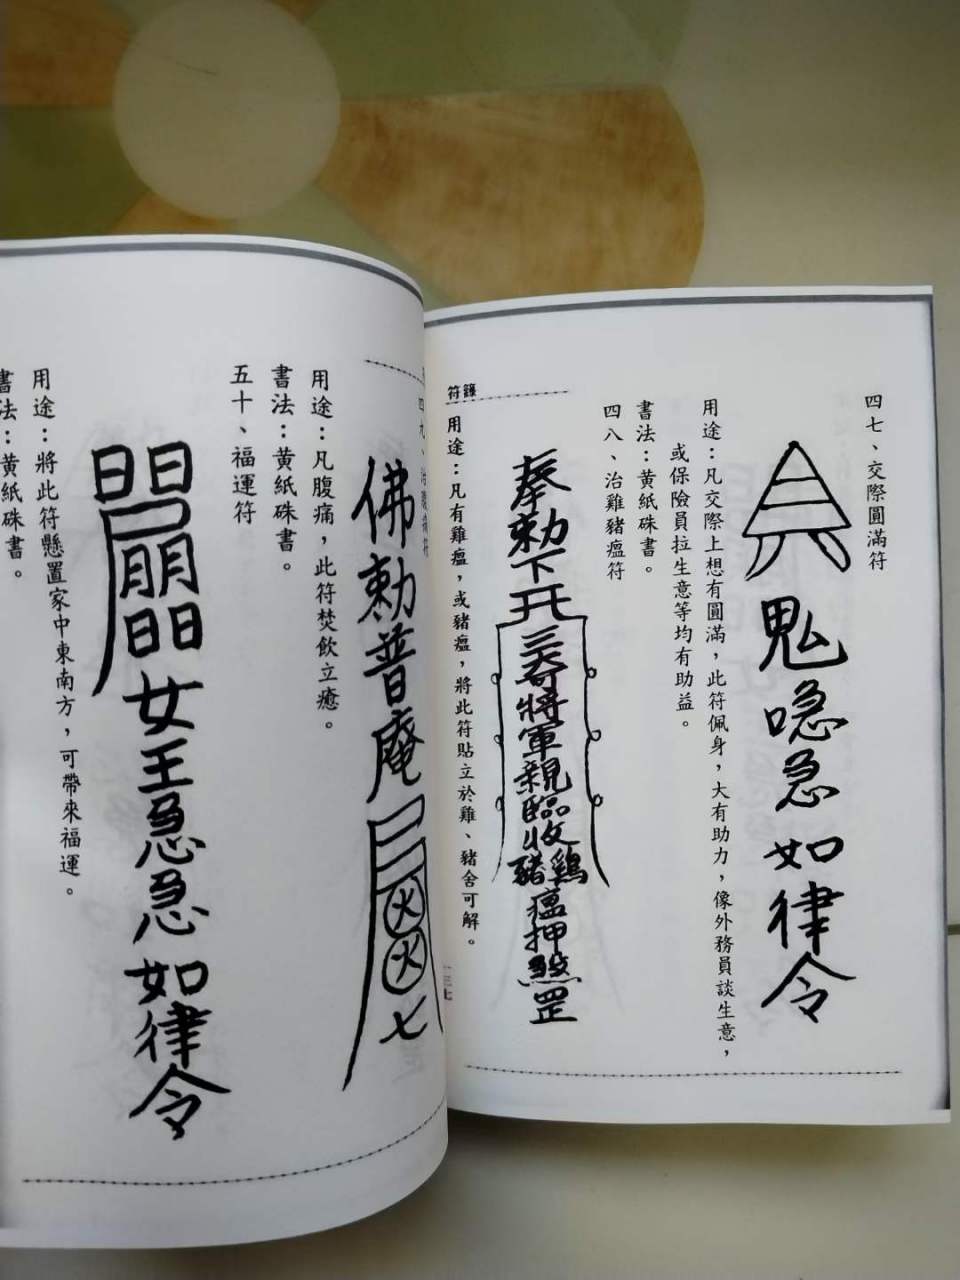 四七、交際圓滿符
急急如律令
用途：凡交際上想有圓滿，此符佩身，大有助力，像外務員談生意，
或保險員拉生意等均有助益。
書法：黃紙硃書。
四八、治雞豬瘟符
奉勅下
將軍親臨收雞豬瘟押煞罡
用途：凡有雞瘟，或豬瘟，將此符貼立於雞、豬舍可解。
符籙
一三七
四九、治腹痛符
佛勅普庵
火火七
用途：凡腹痛，此符焚飲立癒。
書法：黃紙硃書。
五十、福運符
日日
日日
女王急急如律令
用途：將此符懸置家中東南方，可帶來福運。
書法：黃紙硃書。